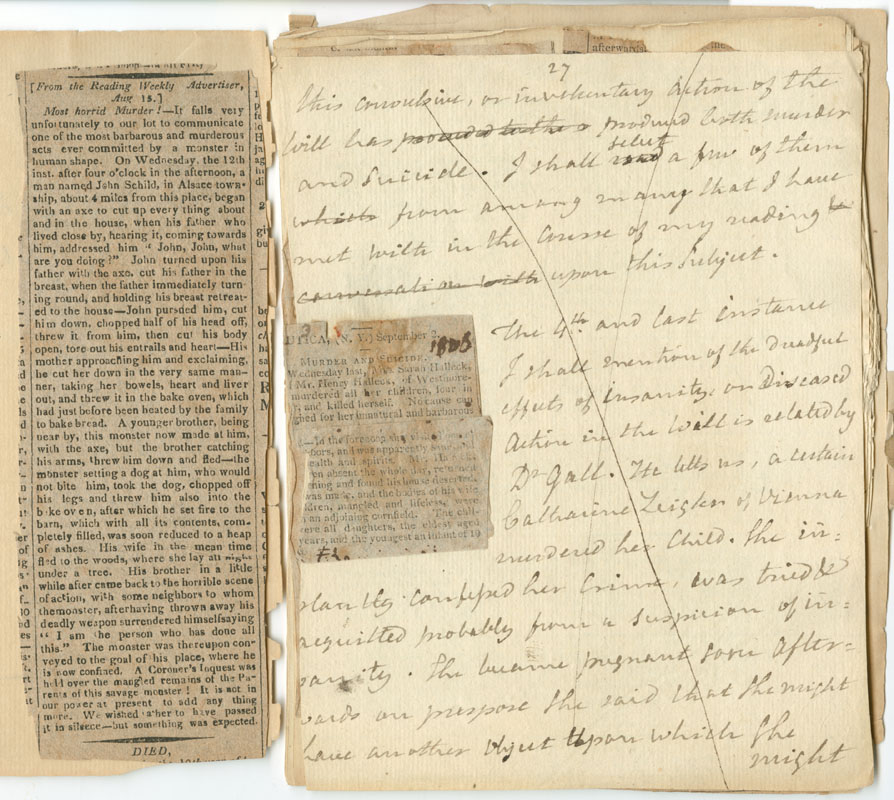 [From the Reading Weekly Advertiser,
Aug 15.]
Most horrid Murder!—It falls very
unfortunately to our lot to communicate
one of the most barbarous and murderous
acts ever committed by a monster in
human shape. On Wednesday, the 12th
inst. after four o'clock in the afternoon, a
man named John Schild, in Alsace town-
ship, about 4 miles from this place, began
with an axe to cut up every thing about
and in the house, when his father who
lived close by, hearing it, coming towards
him, addressed him "John, John, what
are you doing?" John turned upon his
father with the axe, cut his father in the
breast, when the father immediately turn-
ing round, and holding his breast retreat-
ed to the house—John pursued him, cut
him down, chopped half of his head off,
threw it from him, then cut his body
open, tore out his entrails and heart—His
mother approaching him and exclaiming,
he cut her down in the very same man-
ner, taking her bowels, heart and liver
out, and threw it in the bake oven, which
had just before been heated by the family
to bake bread. A younger brother, being
near by, this monster now made at him,
with the axe, but the brother catching
his arms, threw him down and fled—the
monster setting a dog at him, who would
not bite him, took the dog, chopped off
his legs and threw him also into the
bake oven, after which he set fire to the
barn, which with all its contents, com-
pletely filled, was soon reduced to a heap
of ashes. His wife in the mean time
fled to the woods, where she lay all night
under a tree. His brother in a little
while after came back to the horrible scene
of action, with some neighbors to whom
the monster, after having thrown away his
deadly weapon surrendered himself saying
"I am the person who has done all
this." The monster was thereupon con-
veyed to the goal of this place, where he
is now confined. A Coroner's Inquest was
held over the mangled remains of the Pa-
rents of this savage monster! It is not in
our power at present to add any thing
more. We wished rather to have passed
it in silence—but something was expected.
DIED,
afterwards
27
this convulsive, or involuntary action of the
Will has proceeded to the produced both murder
and Suicide. I shall select a few of them
which from among many that I have
met with in the course of my reading
conversation with upon this Subject.
UTICA, (N. Y.) September 2.
1805
MURDER AND SUICIDE.
Wednesday last, Mrs. Sarah Halleck,
Mr. Henry Halleck, of Westmore-
murdered all her children, four in
and killed herself. No cause can
gned for her unnatural and barbarous
—In the forenoon she
bors, and was apparently
health and spirits.
on absent the whole day, return
ning and found his house deserted.
was made, and the bodies of his wife
dren, mangled and lifeless, were
an adjoining cornfield. The chil-
ere all daughters, the eldest aged
years, and the youngest an infant of 10
The 4th and last instance
I shall mention of the dreadful
effects of insanity, or Diseased
Action in the Will is related by
Dr Gall. He tells us, a certain
Catharine Zeigler of Vienna
murdered her Child. She in=
stantly confessed her Crime, was tried &
acquitted probably from a suspicion of in=
sanity. She became pregnant soon after=
wards on prespose she said that she might
have another Object upon which she
might